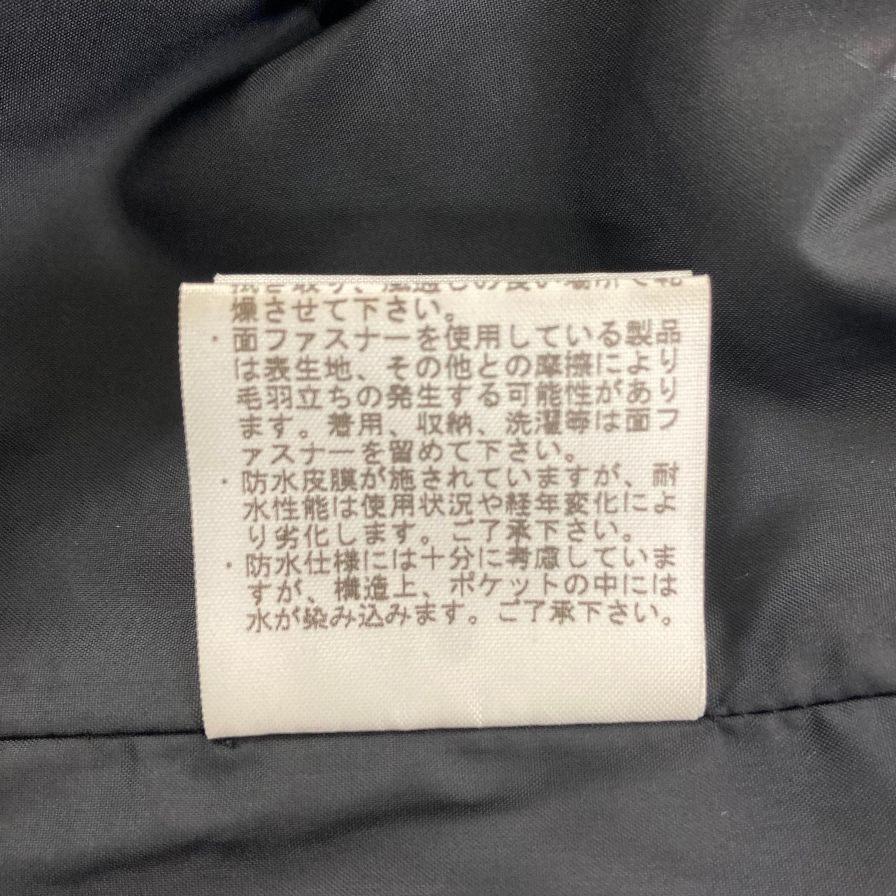 き取り、風通しの良い場所で乾
燥させて下さい。
・面ファスナーを使用している製品
は表生地、その他との摩擦により
毛羽立ちの発生する可能性があり
ます。着用、収納、洗濯等は面フ
ァスナーを留めて下さい。
・防水皮膜が施されていますが、耐
水性能は使用状況や経年変化によ
り劣化します。ご了承下さい。
・防水仕様には十分に考慮していま
すが、構造上、ポケットの中には
水が染み込みます。ご了承下さい。